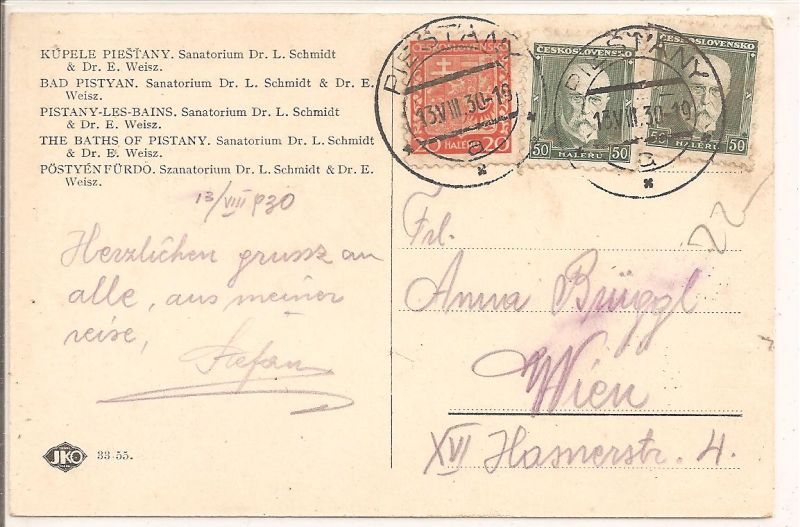 KÚPELE PIEŠŤANY. Sanatorium Dr. L. Schmidt
& Dr. E. Weisz.
BAD PISTYAN. Sanatorium Dr. L. Schmidt & Dr. E.
Weisz.
PISTANY-LES-BAINS. Sanatorium Dr. L. Schmidt
& Dr. E. Weisz.
THE BATHS OF PISTANY. Sanatorium Dr. L. Schmidt
& Dr. E. Weisz.
PÖSTYÉNFÜRDO. Szanatorium Dr. L. Schmidt & Dr. E.
Weisz.
13/VIII 930
Herzlichen grusse an
alle, aus meiner
reise,
Stefan
JKO 33-55.
ČESKOSLOVENSKO
20 HALÉŘŮ 20
ČESKOSLOVENSKO
50 HALÉŘŮ 50
ČESKOSLOVENSKO
50 HALÉŘŮ 50
PIEŠŤANY
13.VIII.30-19
a
PIEŠŤANY
13.VIII.30-19
a
22
Frl.
Anna Brüggl
Wien
XVI Hasnerstr. 4.